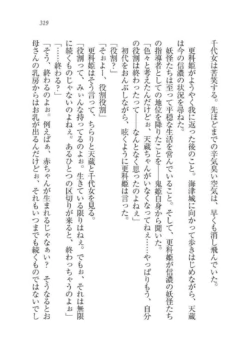 319
千代女は苦笑する。先ほどまでの辛気臭い空気は、早くも消し飛んでいた。
更科姫がようやく我に返った後のこと。海津城に向かって歩きはじめながら、天蔵
は今の信濃の状況を尋ねた。
妖怪たちは手堅く平穏な生活を営んでいること。そして、更科姫が信濃の妖怪たち
の指導者としての地位を降りたことを――鬼姫自身から聞いた。
「色々と考えたんだけどぉ、天蔵ちゃんがいなくなってねぇ……やっぱりもう、自分
の役割は終わったって――なんとなく思ったのよねぇ」
初代をおんぶしながら、呟くように更科姫は言った。
「役割?」
「そぉよー。役割役割」
更科姫はそう言って、ちらりと天蔵と千代女を見る。
「役割って、みぃんな持ってるのよぉ。生きている限りはねぇ。でもぉ、それは無限
に続くものじゃないのよねぇ。あるひとつの区切りが来ると、終わっちゃうのよぉ」
「……終わる?」
「そう、終わるのよぉ。例えばぁ、赤ちゃんが生まれるじゃなぁい? そうなるとお
母さんの乳房からはお乳が出るんだけどぉ、それもいつまでも続くものではないでし